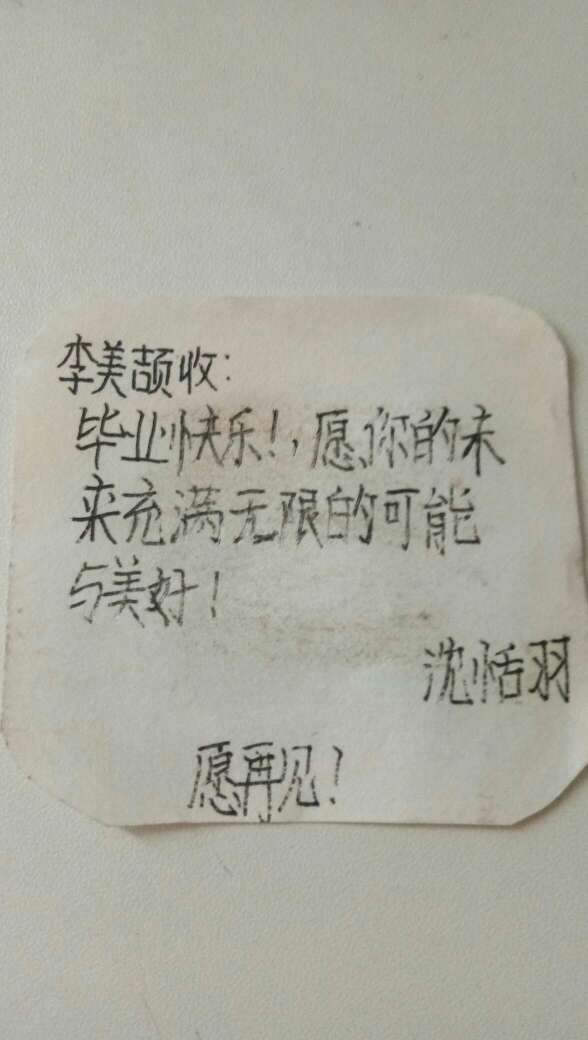 李美颉收：
毕业快乐！，愿你的未
来充满无限的可能
与美好！
沈恬羽
愿再见！